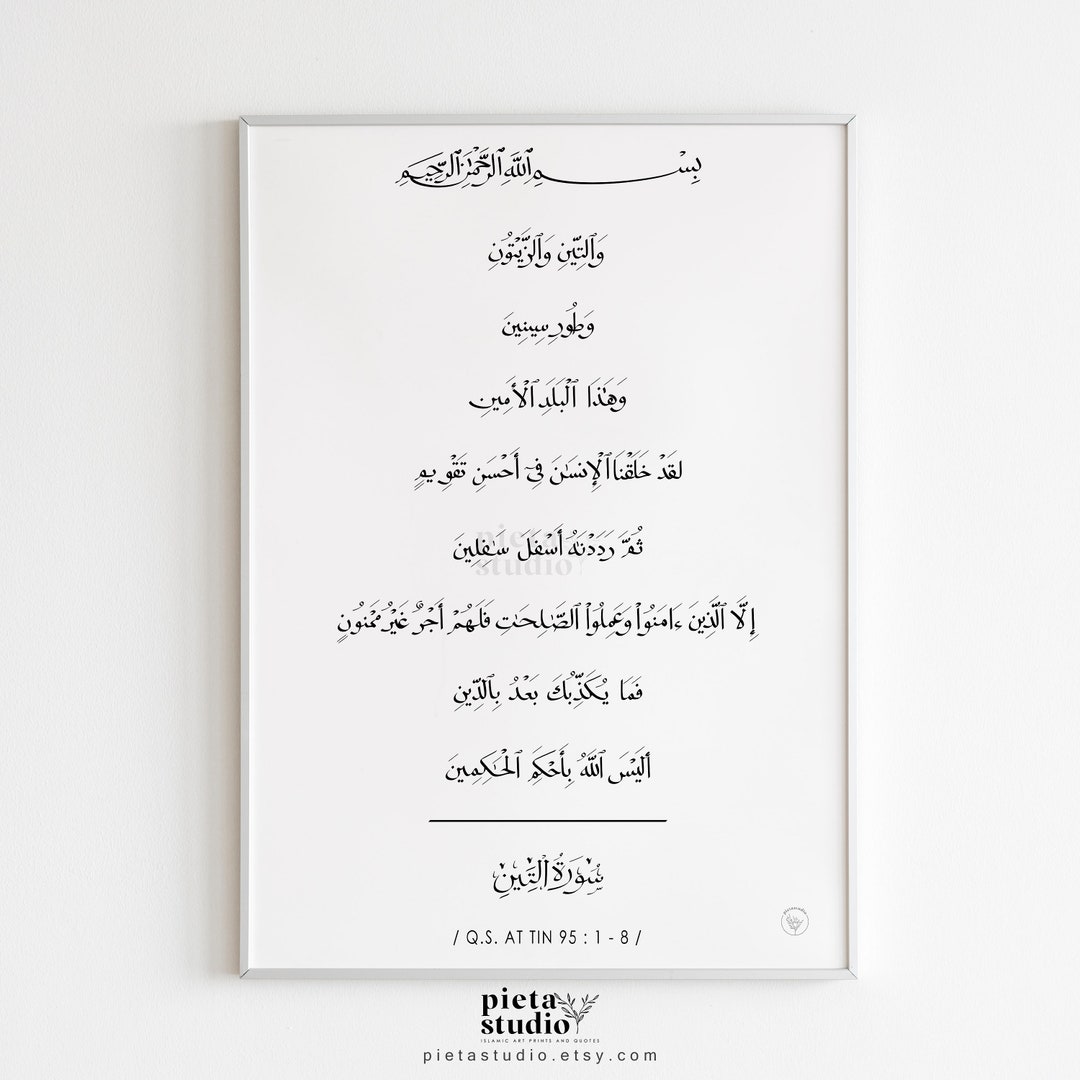 بِسْمِ ٱللَّهِ ٱلرَّحْمَٰنِ ٱلرَّحِيمِ
وَٱلتِّينِ وَٱلزَّيْتُونِ
وَطُورِ سِينِينَ
وَهَٰذَا ٱلْبَلَدِ ٱلْأَمِينِ
لَقَدْ خَلَقْنَا ٱلْإِنسَٰنَ فِىٓ أَحْسَنِ تَقْوِيمٍ
ثُمَّ رَدَدْنَٰهُ أَسْفَلَ سَٰفِلِينَ
إِلَّا ٱلَّذِينَ ءَامَنُوا۟ وَعَمِلُوا۟ ٱلصَّٰلِحَٰتِ فَلَهُمْ أَجْرٌ غَيْرُ مَمْنُونٍ
فَمَا يُكَذِّبُكَ بَعْدُ بِٱلدِّينِ
أَلَيْسَ ٱللَّهُ بِأَحْكَمِ ٱلْحَٰكِمِينَ
سُورَةُ التِّينِ
/ Q.S. AT TIN 95 : 1 - 8 /
pieta
studio
ISLAMIC ART PRINTS AND QUOTES
pietastudio.etsy.com
pieta
studio
pietastudio